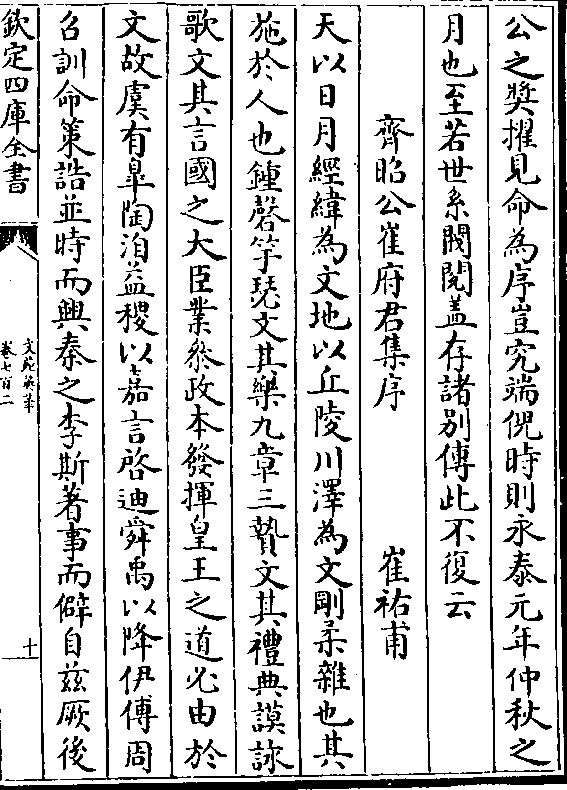 公之奬擢見命為序豈究端倪時則永泰元年仲秋之
月也至若世系閥閱盖存諸别傳此不復云
齊昭公崔府君集序 崔祐甫
天以日月經緯為文地以丘陵川澤為文剛柔雜也其
施於人也鍾磬竽瑟文其樂九章三贄文其禮典謨詠
歌文其言國之大臣業叅政本發揮皇王之道必由於
文故虞有臯陶洎益稷以嘉言啓迪舜禹以降伊傅周
召訓命策誥並時而興秦之李斯著事而僻自兹厥後
欽定四庫全書
文苑英華
卷七百二
十